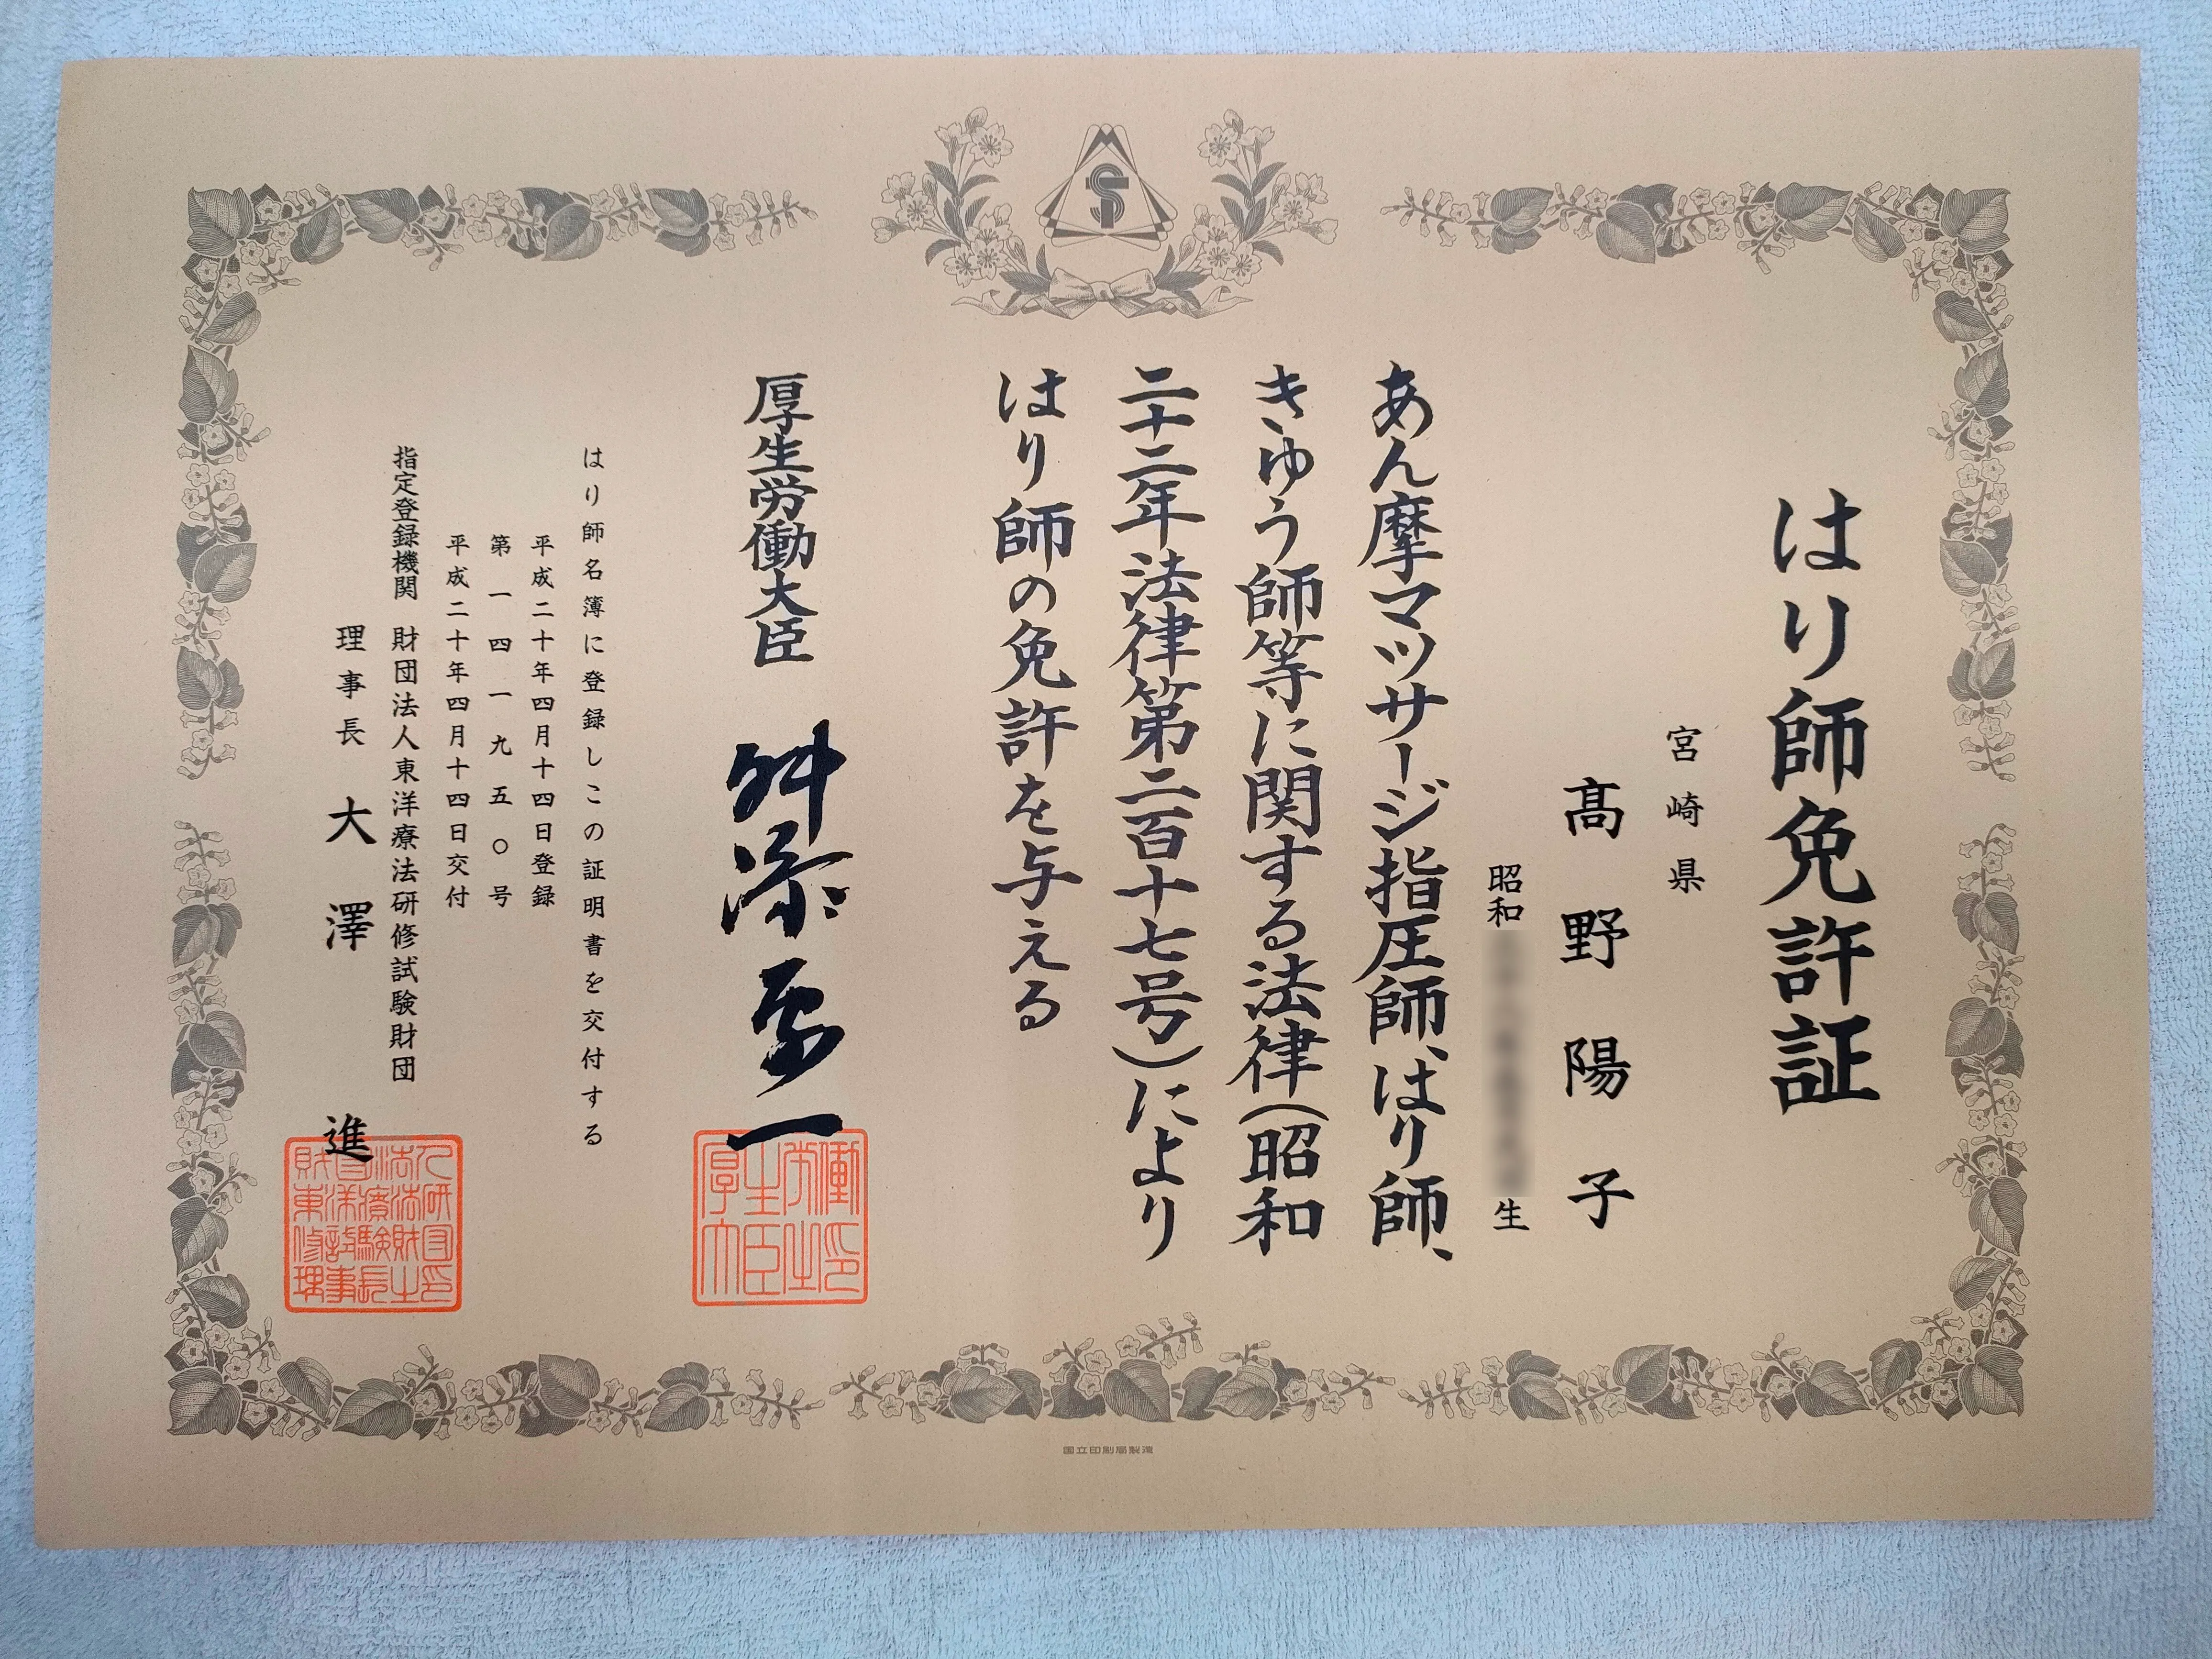 はり師免許証
宮崎県
髙野陽子
昭和
生
あん摩マツサージ指圧師、はり師、
きゆう師等に関する法律(昭和
二十二年法律第二百十七号)により
はり師の免許を与える
厚生労働大臣 舛添要一
はり師名簿に登録しこの証明書を交付する
平成二十年四月十四日登録
第一四一九五〇号
平成二十年四月十四日交付
指定登録機関 財団法人東洋療法研修試験財団
理事長 大澤進
国立印刷局製造